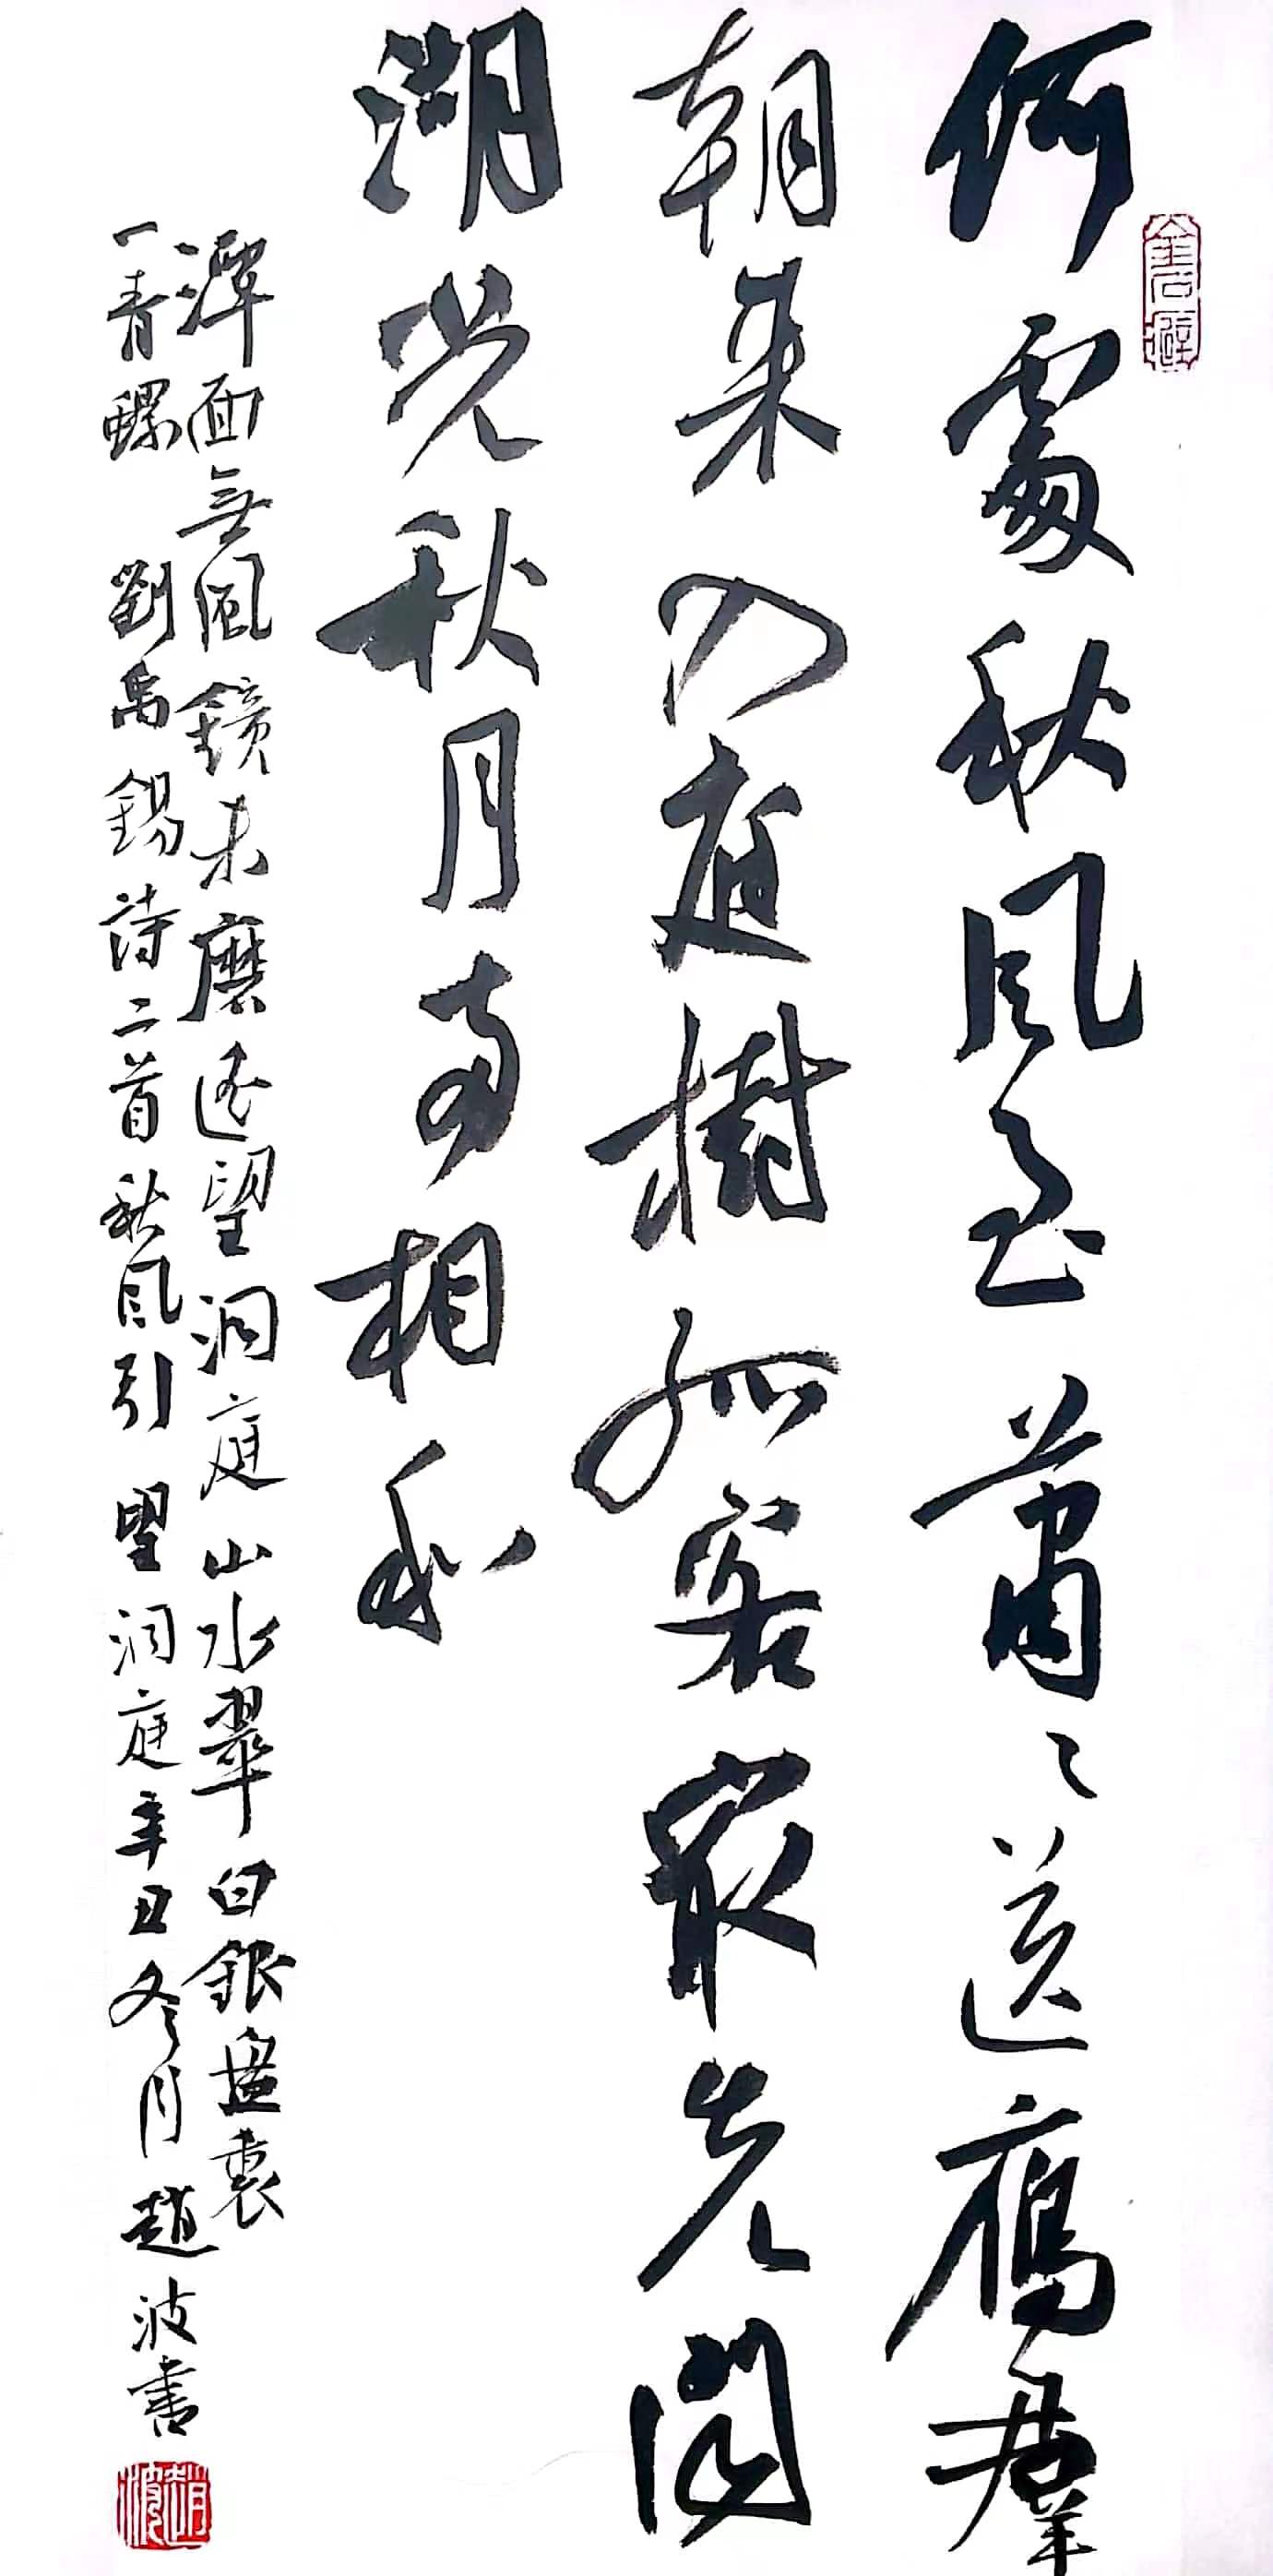 何處秋風至蕭〻送鴈羣
朝来入庭樹孤客㝡先聞
湖光秋月兩相和
潭面無風鏡未磨遥望洞庭山水翠白銀盤裏
一青螺 劉禹錫詩二首秋風引 望洞庭辛丑冬月趙波書
趙波